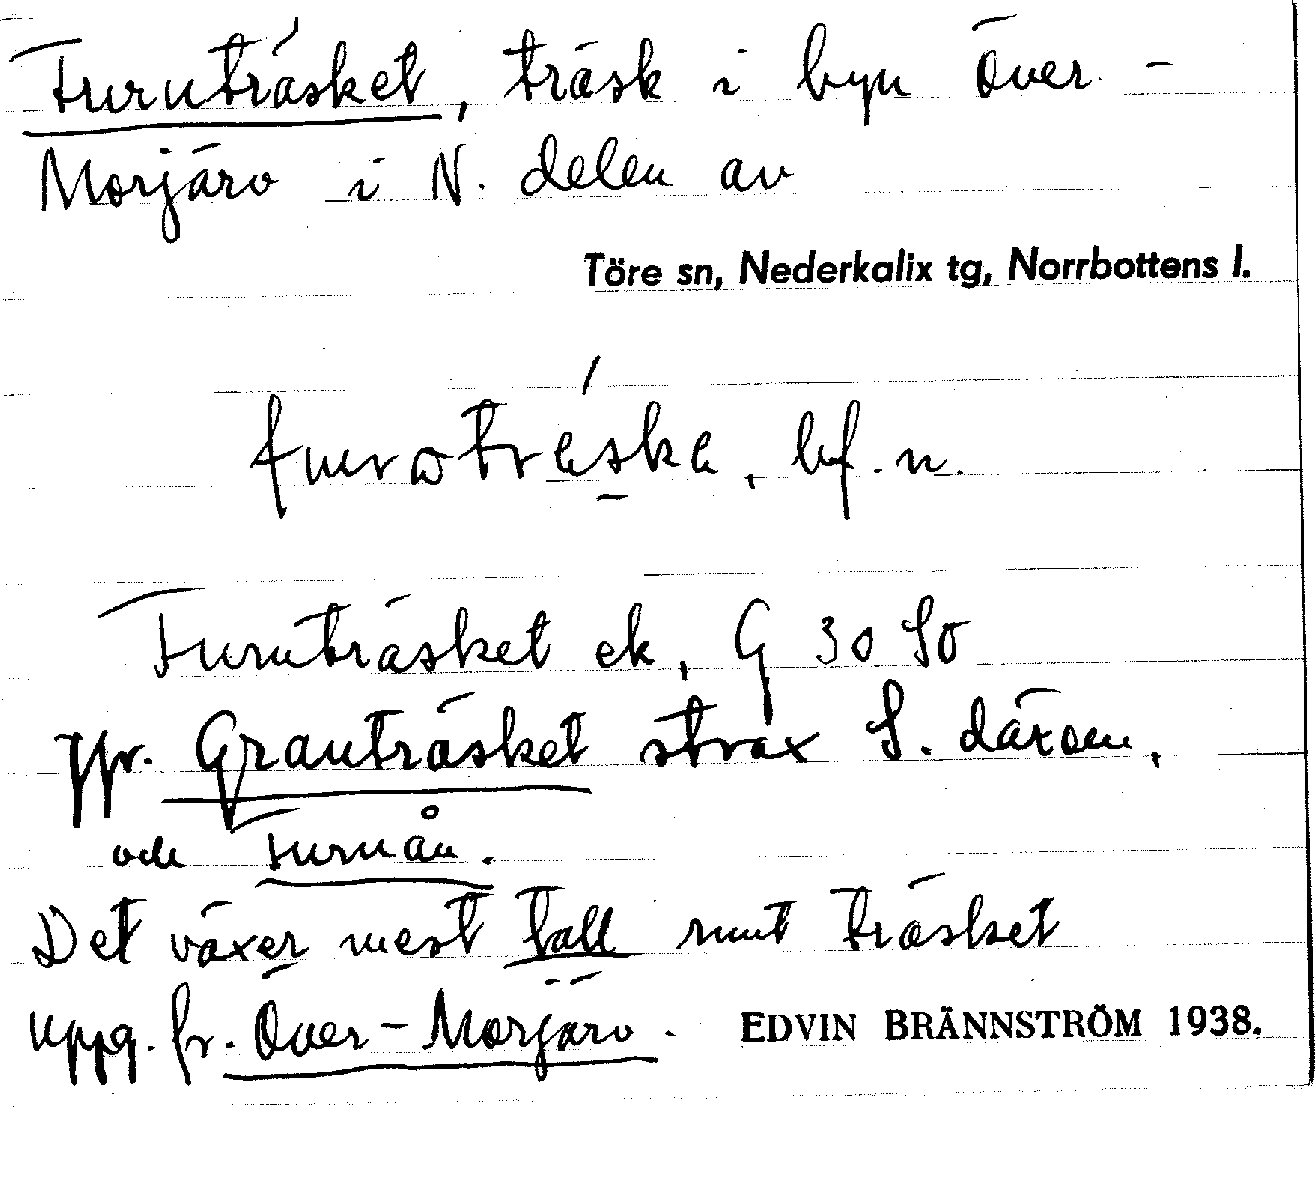 Furuträsket, träsk i byn Över-
Morjärv i N. delen av
Töre sn, Nederkalix tg, Norrbottens l.
bf. n.
Furuträsket ek, G 30 SO
Jfr. Granträsket strax S. därom,
och Furuån.
Det växer mest tall runt träsket
Uppg. fr. Över-Morjärv.
EDVIN BRÄNNSTRÖM 1938.